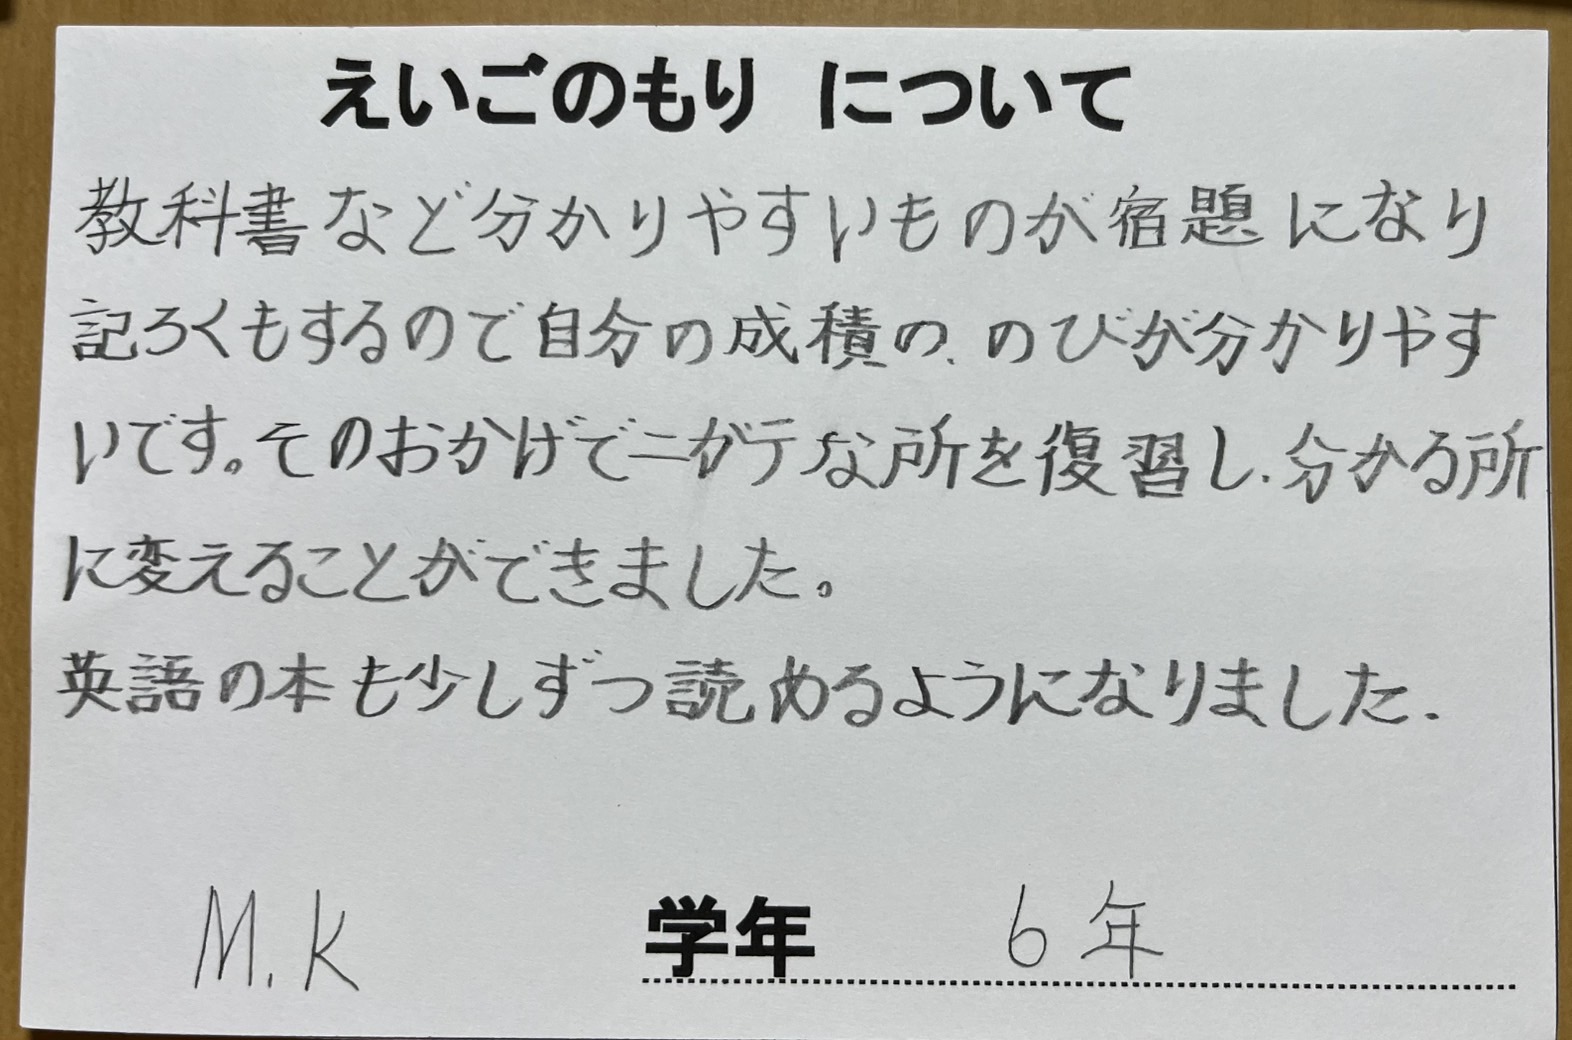 えいごのもり について
教科書など分かりやすいものが宿題になり
記ろくもするので自分の成積の、のびが分かりやす
いです。そのおかげでニガテな所を復習し、分かる所
に変えることができました。
英語の本も少しずつ読めるようになりました.
M.K 学年 6年